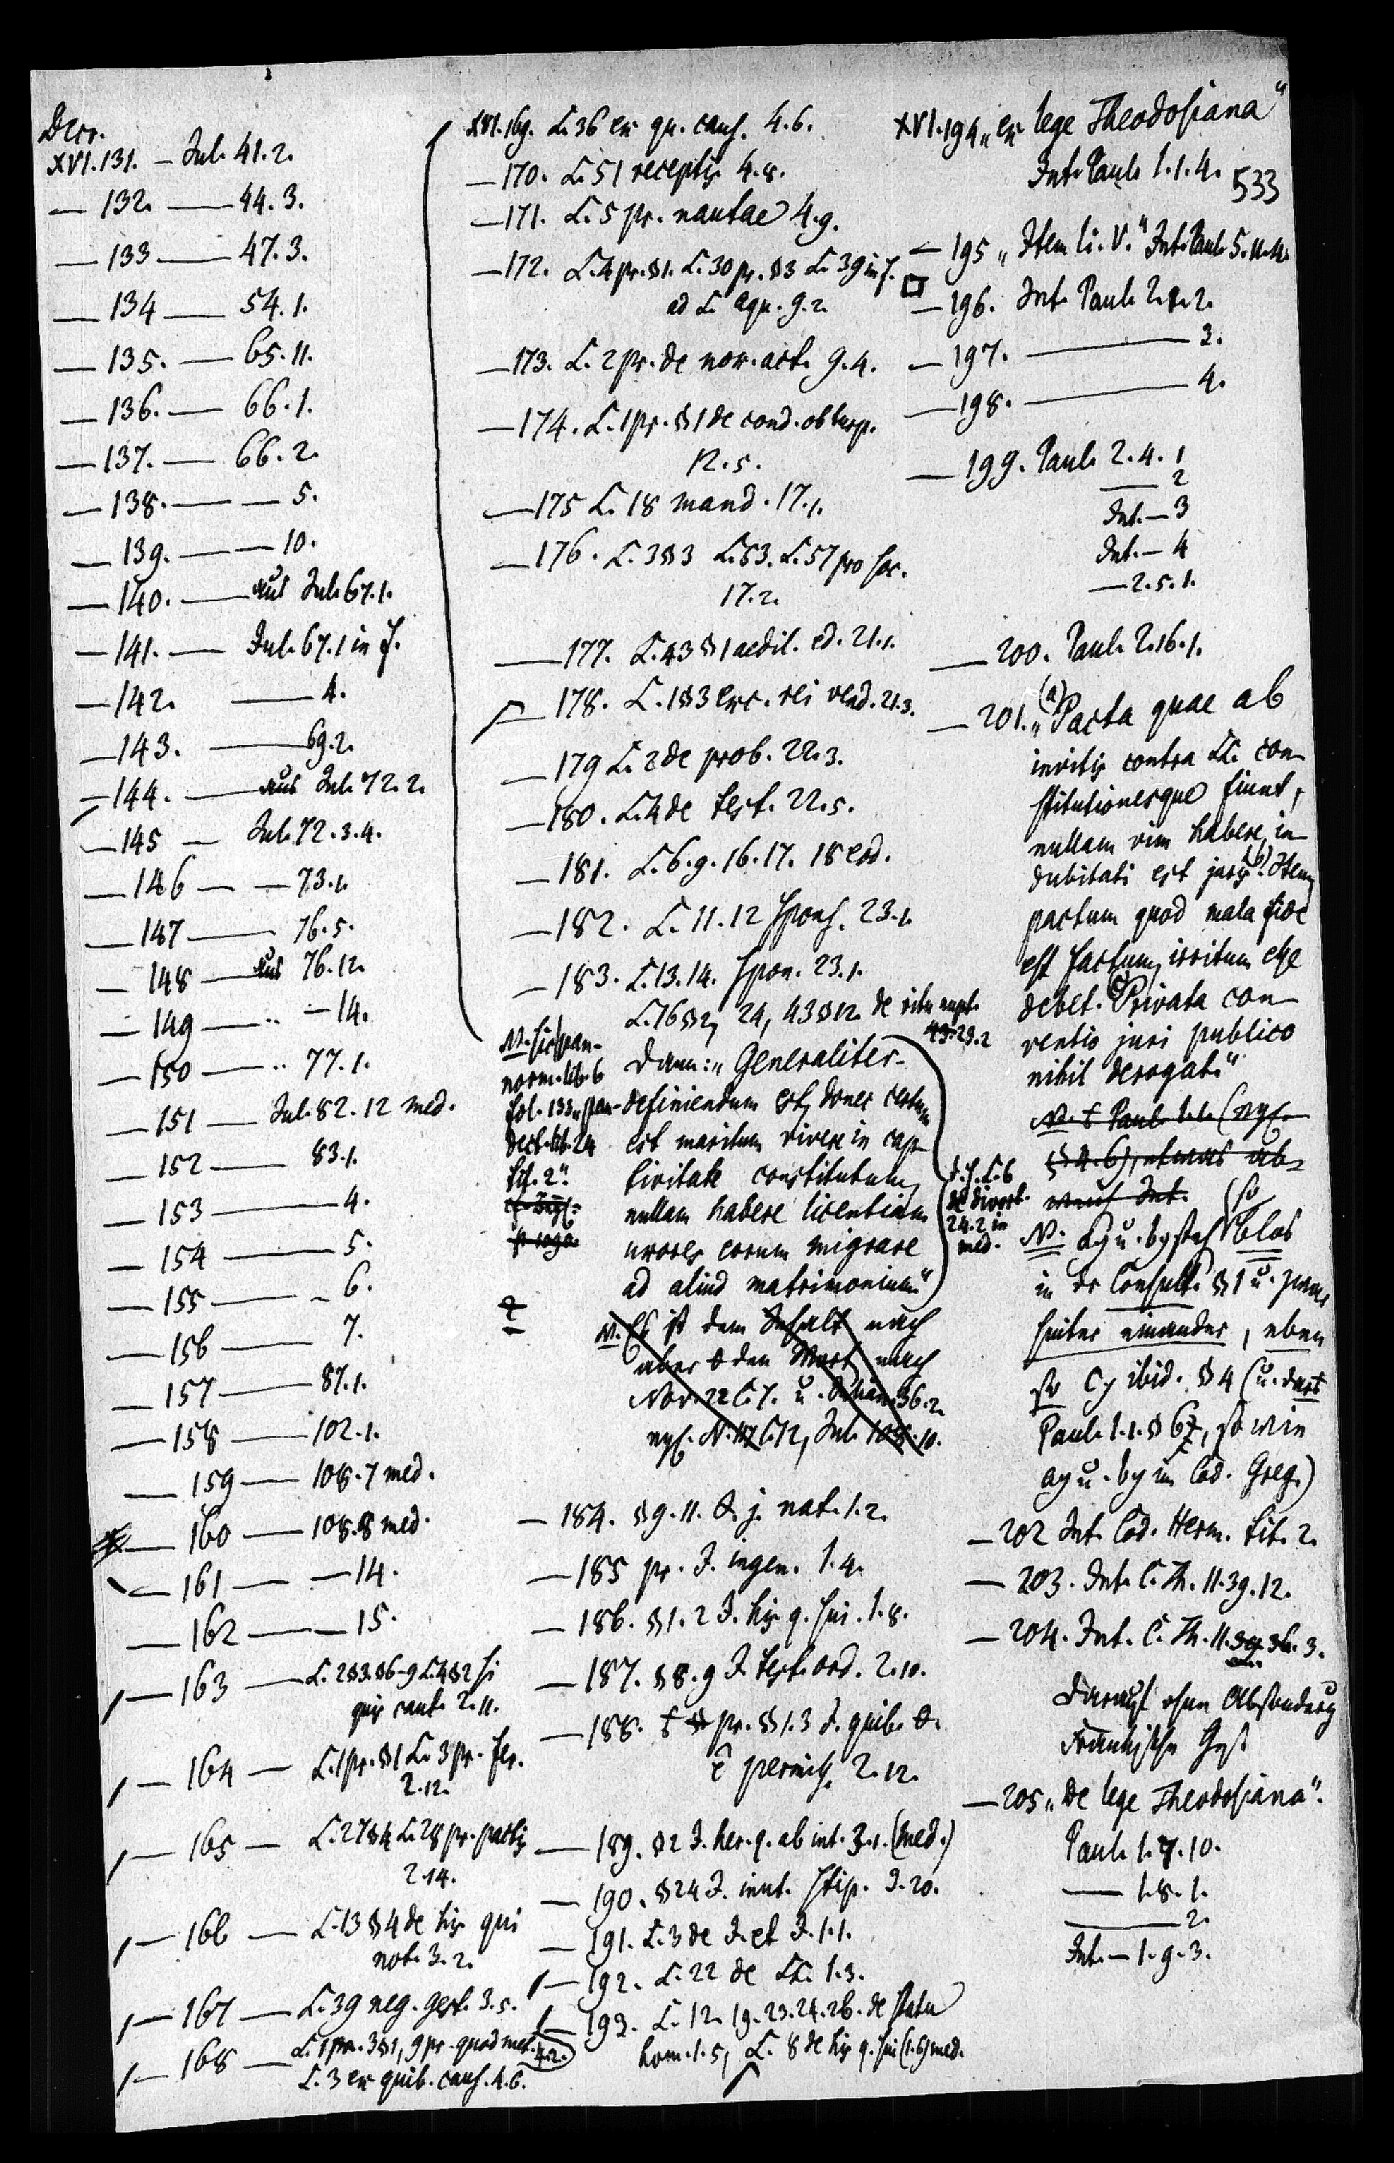 Decr.
XVI.131. — Jul. 41.2.
— 132. — 44.3.
— 133 — 47.3.
— 134 — 54.1.
— 135. — 65.11.
— 136. — 66.1.
— 137. — 66.2.
— 138. — — 5.
— 139. — — 10.
— 140. — aus Jul. 67.1.
— 141. — Jul. 67.1 in f.
— 142. — 4.
— 143. — 69.2.
— 144. — aus Jul. 72.2.
— 145 — Jul. 72.3.4.
— 146 — — 73.1.
— 147 — 76.5.
— 148 — aus 76.12.
— 149 — .. — 14.
— 150 — .. 77.1.
— 151 — Jul. 82.12 med.
— 152 — 83.1.
— 153 — 4.
— 154 — 5.
— 155 — 6.
— 156 — 7.
— 157 — 87.1.
— 158 — 102.1.
— 159 — 108.7 med.
— 160 — 108.8 med.
— 161 — — 14.
— 162 — — 15.
— 163 — L. 2§3.§6-9 L.4§2 si
quis caut. 2.11.
— 164 — L.1pr.§1 L.3pr. fer.
2.12.
— 165 — L.27§4 L.28 pr. pactis
2.14.
— 166 — L.13§4 de his qui
not. 3.2.
— 167 — L.39 neg. gest. 3.5.
— 168 — 3§1, 9pr. quod met. 4.2.
L.3 ex quib. caus. 4.6.
XVI.169. L.36 ex qu. caus. 4.6.
— 170. L.51 receptis 4.8.
— 171. L.5 pr. nautae 4.9.
— 172. L.4pr.§1. L.30pr.§3 L.39 in f.
ad L. Aqu. 9.2.
— 173. L.2pr. de nox. act. 9.4.
— 174. L.1pr.§1 de cond. ob turp.
12.5.
— 175 L.18 mand. 17.1.
— 176. L.3§3 L.53. L.57 pro soc.
17.2.
— 177. L.43§1 aedil. ed. 21.1.
— 178. L.1§3 exc. rei vend. 21.3.
— 179 L.2 de prob. 22.3.
— 180. L.4 de test. 22.5.
— 181. L.6.9.16.17.18 eod.
— 182. L.11.12 spons. 23.1.
— 183. L.13.14. spon. 23.1.
L.16§2, 24, 43§12 de ritu nupt.
23.2
Dann: „Generaliter
definiendum est, donec certum
est maritum vivere in cap-
tivitate constitutum,
nullam habere licentiam
uxores eorum migrare
ad aliud matrimonium“
d. h. L.6
de divort.
24.2 in
med.
?
N. Es ist dem Inhalt nach
aber den Wort nach
Nov. 22 C.7. u. Julian. 36.2.
vgl. N.117 C.12, Jul.
— 184. §9.11. J. j. nat. 1.2.
— 185 pr. J. ingen. 1.4.
— 186. §1.2 J. his q. sui. 1.8.
— 187. §8.9 J. test. ord. 2.10.
— 188. pr. §1.3 J. quib.
permiss. 2.12.
— 189. §2 J. her. q. ab int. 3.1. (med.)
— 190. §24 J. inut. stip. 3.20.
— 191. L.3 de J. et J. 1.1.
— 192. L.22 de LL. 1.3.
— 193. L.12.19.23.24.26. de statu
hom. 1.5, L.8 de his q. sui (1.6) med.
XVI.194 „ex lege Theodosiana“
Int. Paul. 1.1.4.
533
— 195 „Item li. V.“ Int. Paul. 5.11.4.
— 196. Int. Paul. 2.1.2.
— 197. — 3.
— 198. — 4.
— 199. Paul. 2.4.1
— 2
Int. — 3
Int. — 4
— 2.5.1.
— 200. Paul. 2.16.1.
— 201. „(a) Pacta quae ab
invitis contra LL. con-
stitutionesque fiunt,
nullam vim habere, in-
dubitati est juris. (b) Item
pactum quod mala fide
est factum, irritum esse
debet. (c) Privata con-
ventio juri publico
nihil derogat.“
N. a) u. b) stehen so blos
in der Consult. §1 u. zwar
hinter einander, eben
so c) ibid. §4 (u. dort
Paul. 1.1.§6, so wie
a) u. b) im Cod. Greg.)
— 202 Int. Cod. Herm. tit. 2.
— 203. Int. C. Th. 11.39.12.
— 204. Int. C. Th. 11.36.3.
Darauf ohne Absonderung
Fränkische Ges.
— 205 „De lege Theodosiana“.
Paul. 1.7.10.
— 1.8.1.
— 2.
Int. — 1.9.3.